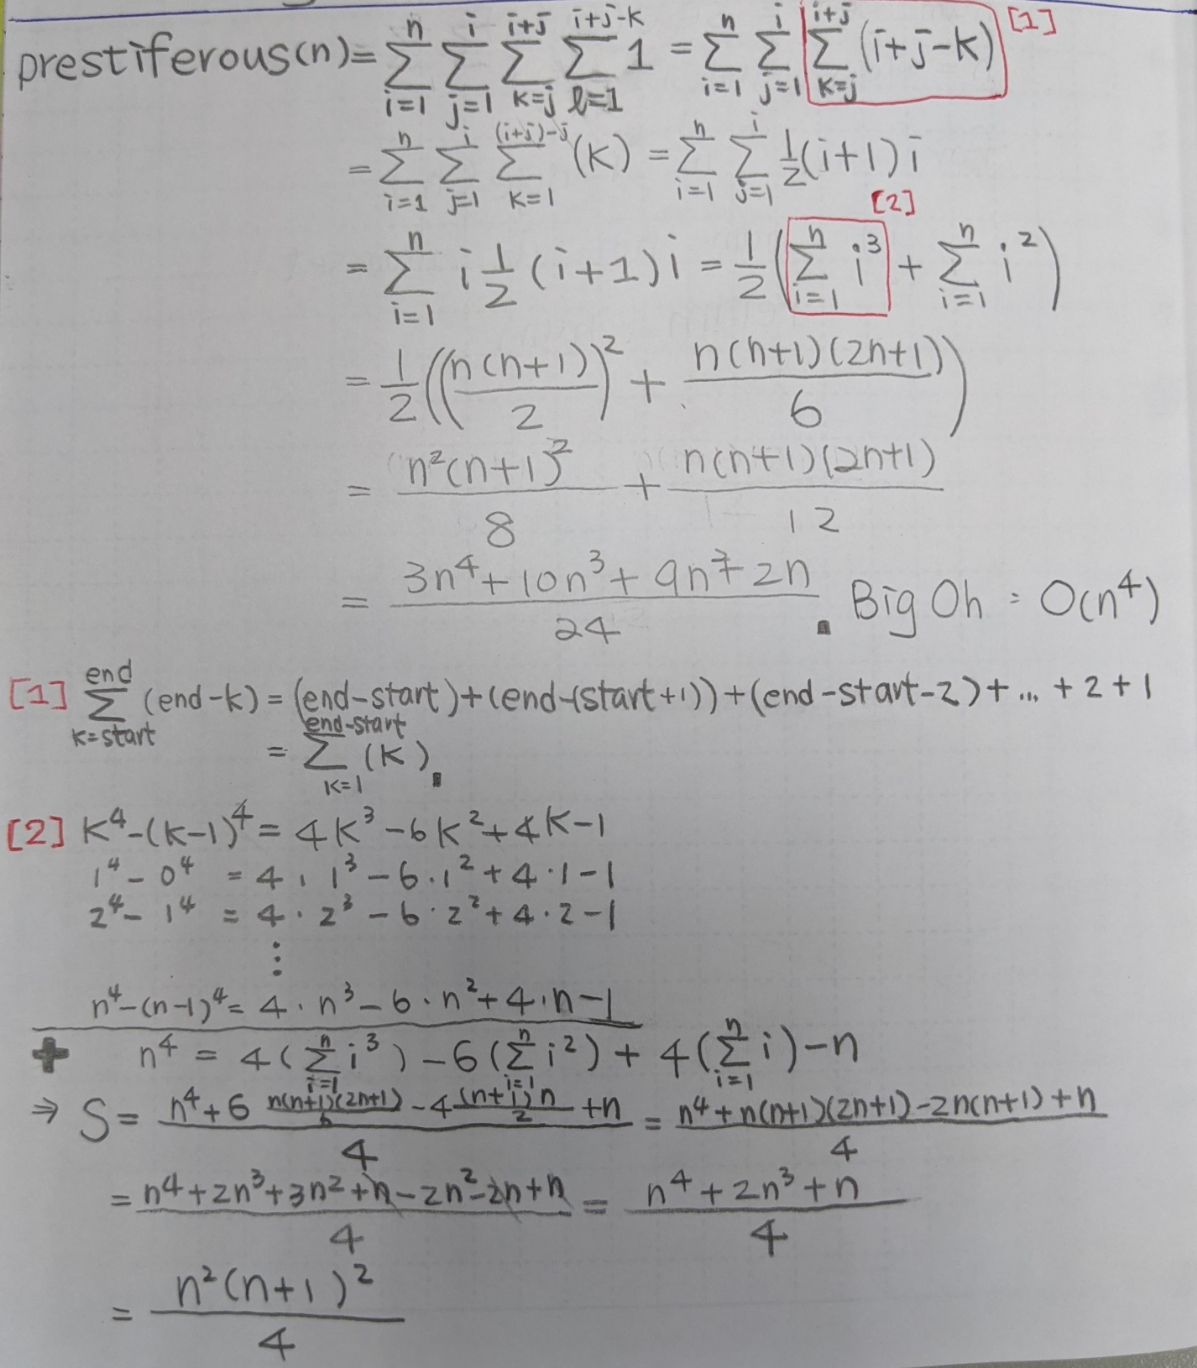 prestiferous(n)= \sum_{i=1}^{n} \sum_{j=1}^{i} \sum_{k=j}^{i+j} \sum_{l=1}^{i+j-k} 1 = \sum_{i=1}^{n} \sum_{j=1}^{i} \sum_{k=j}^{i+j} (i+j-k) [1]
= \sum_{i=1}^{n} \sum_{j=1}^{i} \sum_{k=1}^{(i+j)-j} (k) = \sum_{i=1}^{n} \sum_{j=1}^{i} \frac{1}{2}(i+1)i
[2]
= \sum_{i=1}^{n} i \frac{1}{2} (i+1) i = \frac{1}{2} ( \sum_{i=1}^{n} i^3 + \sum_{i=1}^{n} i^2 )
= \frac{1}{2} ( ( \frac{n(n+1)}{2} )^2 + \frac{n(n+1)(2n+1)}{6} )
= \frac{n^2(n+1)^2}{8} + \frac{n(n+1)(2n+1)}{12}
= \frac{3n^4+10n^3+9n^2+2n}{24} . Big Oh = O(n^4)
[1] \sum_{k=start}^{end} (end-k) = (end-start)+(end-(start+1))+(end-start-2)+ ... +2+1
= \sum_{k=1}^{end-start} (k) .
[2] k^4-(k-1)^4 = 4k^3-6k^2+4k-1
1^4-0^4 = 4 · 1^3-6·1^2+4·1-1
2^4-1^4 = 4 · 2^3-6·2^2+4·2-1
⋮
n^4-(n-1)^4 = 4 · n^3-6·n^2+4·n-1
+ n^4 = 4( \sum_{i=1}^{n} i^3 ) - 6( \sum_{i=1}^{n} i^2 ) + 4( \sum_{i=1}^{n} i ) - n
⇒ S = \frac{n^4+6 \frac{n(n+1)(2n+1)}{6} - 4 \frac{(n+1)n}{2} + n}{4} = \frac{n^4+n(n+1)(2n+1)-2n(n+1)+n}{4}
= \frac{n^4+2n^3+3n^2+n-2n^2-2n+n}{4} = \frac{n^4+2n^3+n}{4}
= \frac{n^2(n+1)^2}{4}